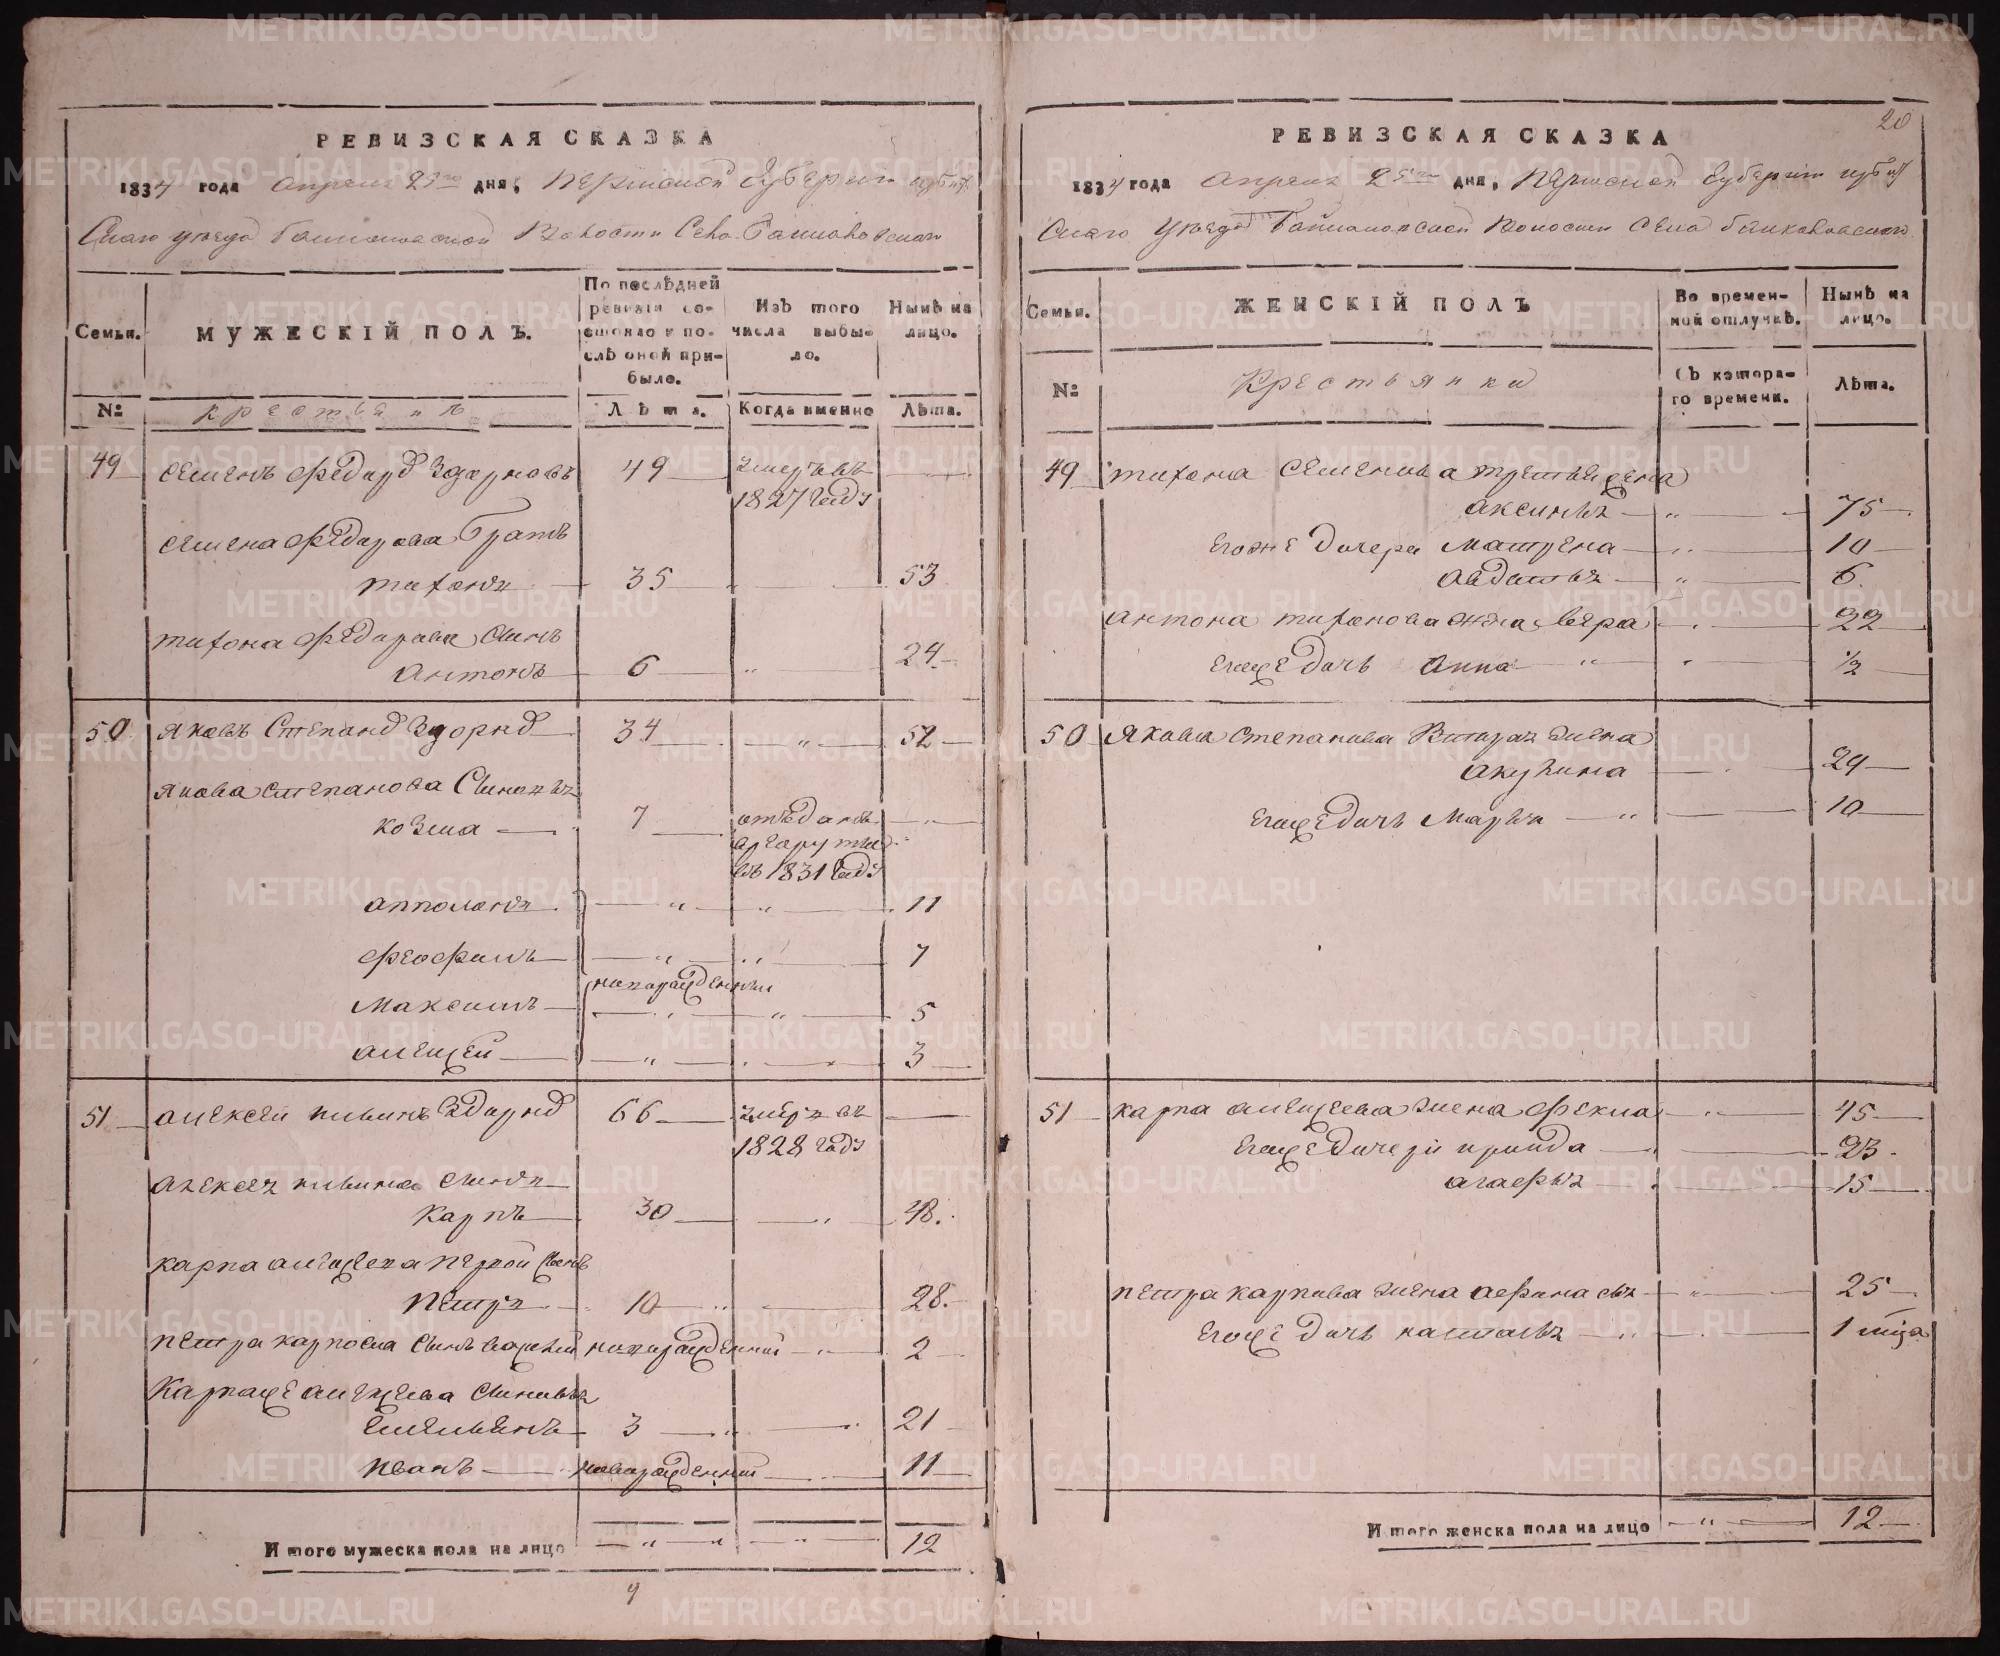 РЕВИЗСКАЯ СКАЗКА
1834 года апреля 25го дня, Пермской Губернии Ирбит
Скаго уезда Волости
Семьи. МУЖЕСКІЙ ПОЛЪ. По послѣдней ревизіи состояло и послѣ оной прибыло. Изъ того числа выбыло. Нынѣ на лицо.
№ крестьянъ Лѣта. Когда именно Лѣта.
49 Семенъ Федоров 49 умеръ въ
1827 году
Семена Федорова братъ
Тихонъ 35 53
Тихона Федорова сынъ
Антонъ 6 24
50 Яковъ Степанов 34 52
Якова Степанова сыновья
Козма 7 отъданъ
въ 1831 году
Апполонъ 11
Феофилъ 7
новорожденныи
Максимъ 5
Алексей 3
51 Алексей 66 умеръ въ
1828 году
Алексея сынъ
Карпъ 30 48.
Карпа Алексеева первой сынъ
Петръ 10 28.
Петра Карпова сынъ новорожденный 2
Карпа же Алексеева сыновья
Емельянъ 3 21
Иванъ новорожденный 11
Итого мужеска пола на лицо 12
9
20
РЕВИЗСКАЯ СКАЗКА
1834 года апреля 25го дня, Пермской Губерніи Ирбит
Скаго Уезда Волости Села
Семьи. ЖЕНСКІЙ ПОЛЪ Во временной отлучкѣ. Нынѣ на лицо.
№ Крестьянки Съ котораго времени. Лѣта.
49 Тихона Семенова третья жена
Аксинья 75
Его же дочери Матрена 10
Авдотья 6
Антона Тихонова жена Вера 22
Его же дочь Анна 1/2
50 Якова Степанова вторая жена
Акулина 29
Его же дочь Марья 10
51 Карпа Алексеева жена Фекла 45
Его же дочери 23
Агафья 15
Петра Карпова жена Афанасья 25
Его же дочь Наталья 1 м-ца
Итого женска пола на лицо 12
METRIKI.GASO-URAL.RU